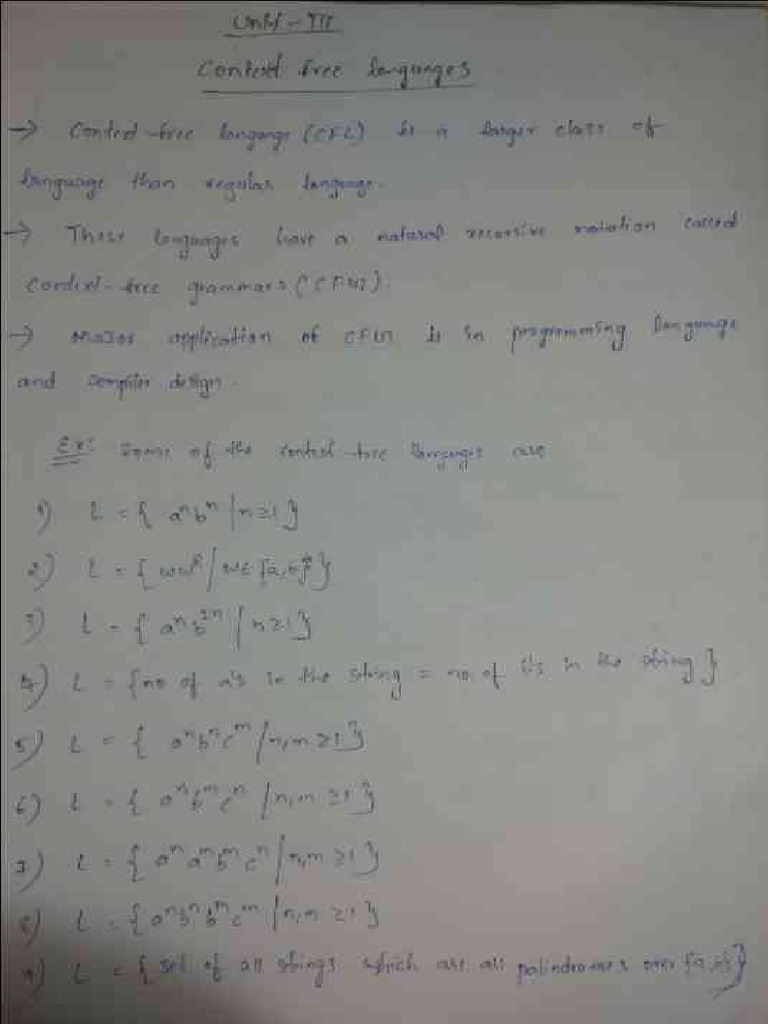 Unit-III
Context free languages
→ Context-free language (CFL) is a larger class of
language than regular language.
→ These languages have a natural recursive notation called
context-free grammars (CFG).
→ Major application of CFG is in programming language
and compiler design.
Ex: Some of the context-free languages are
1) L = { aⁿbⁿ / n≥1 }
2) L = { wwᴿ / w∈{a,b}* }
3) L = { aⁿb²ⁿ / n≥1 }
4) L = { no of a's in the string = no of b's in the string }
5) L = { aⁿbⁿcᵐ / n,m ≥1 }
6) L = { aⁿbᵐcⁿ / n,m ≥1 }
7) L = { aⁿaᵐbᵐcⁿ / n,m ≥1 }
8) L = { aⁿbⁿbᵐcᵐ / n,m ≥1 }
9) L = { set of all strings which are all palindromes over {a,b} }